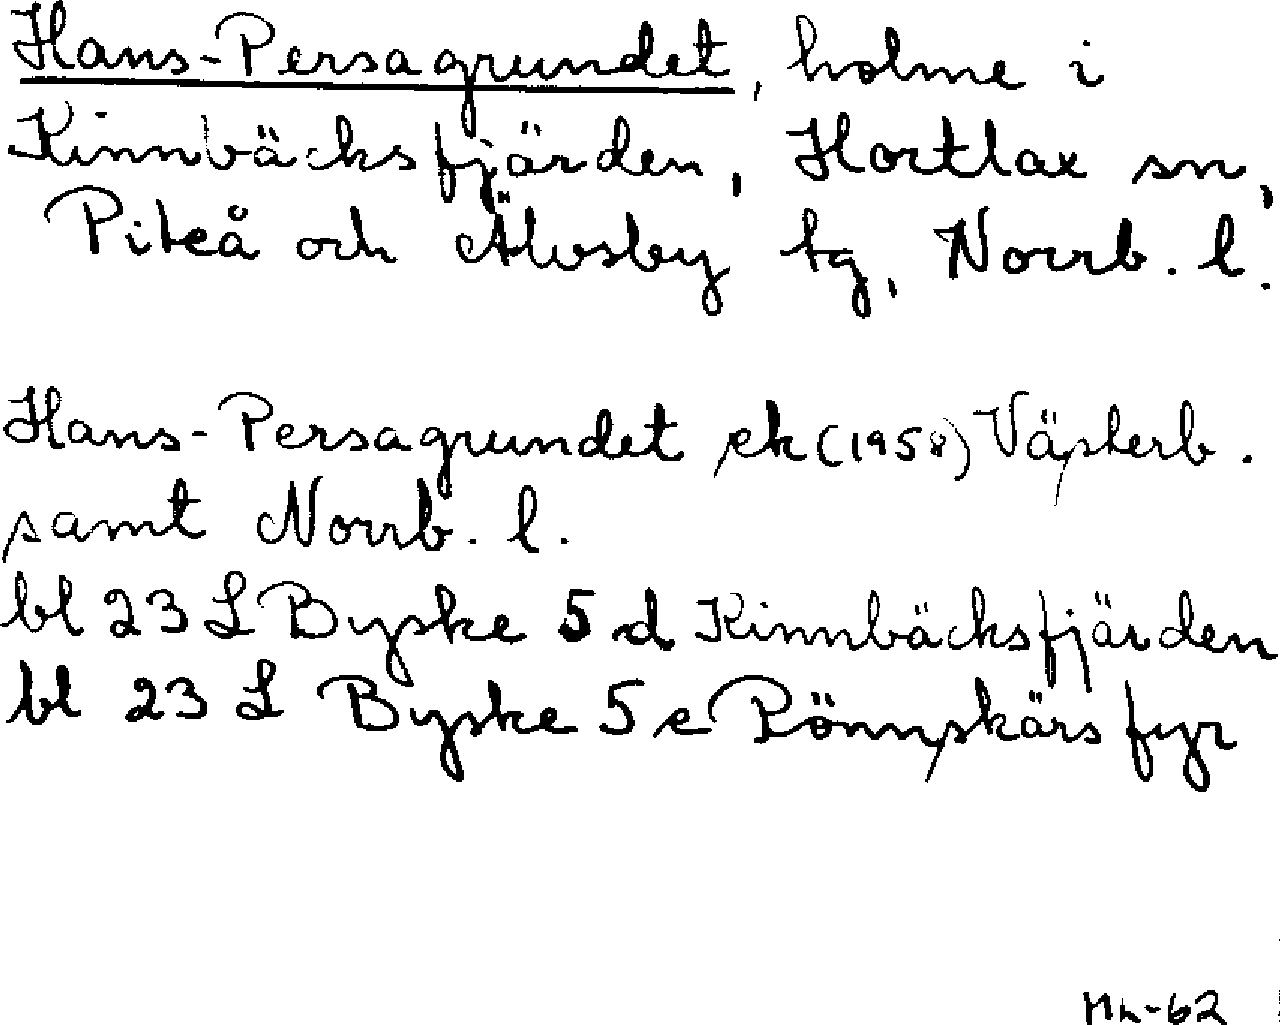 Hans-Persagrundet, holme i
Kinnbäcksfjärden, Hortlax sn,
Piteå och Älvsby tg, Norrb. l.
Hans-Persagrundet ek (1958) Västerb.
samt Norrb. l.
bl 23 L Byske 5 d Kinnbäcksfjärden
bl 23 L Byske 5 e Rönnskärs fyr